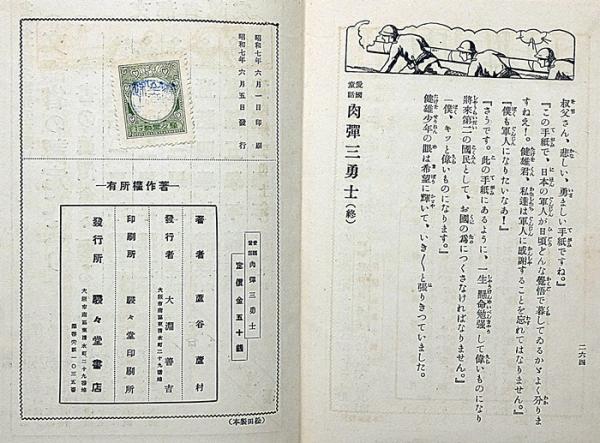 二六四
叔父さん、悲しい、勇ましい手紙ですね。』
『この手紙で、日本の軍人が日頃どんな覺悟で暮してゐるかゞよく分りま
すねえ！。健雄君、私達は軍人に感謝することを忘れてはなりません。』
『僕も軍人になりたいなあ！』
『さうです。此の手紙にあるように、一生懸命勉強して偉いものになり
將來第二の國民として、お國の爲につくさなければなりません。』
『僕、キッと偉いものになります。』
健雄少年の眼は希望に輝いて、いき〱と張りきつていました。
愛國童話 肉彈三勇士（終）
昭和七年六月一日印刷
昭和七年六月五日發行
著作權所有
愛國童話 肉彈三勇士
定價金五十錢
著者 蘆谷蘆村
發行者 大淵善吉
大阪市南區東清水町二十九番地
印刷所 駸々堂印刷所
發行所 駸々堂書店
大阪市南區東清水町二十九番地
（松田製本）